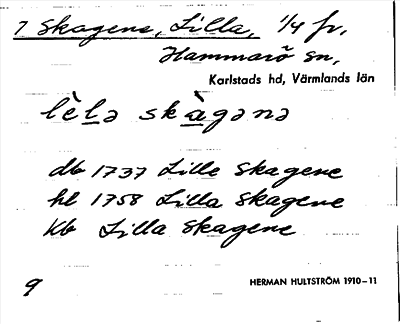 7 Skagene, Lilla, 1/4 fr,
Hammarö sn,
Karlstads hd, Värmlands län
lèlə skàgənə
db 1737 Lille Skagene
hl 1758 Lilla Skagene
Kb Lilla Skagene
9
HERMAN HULTSTRÖM 1910–11